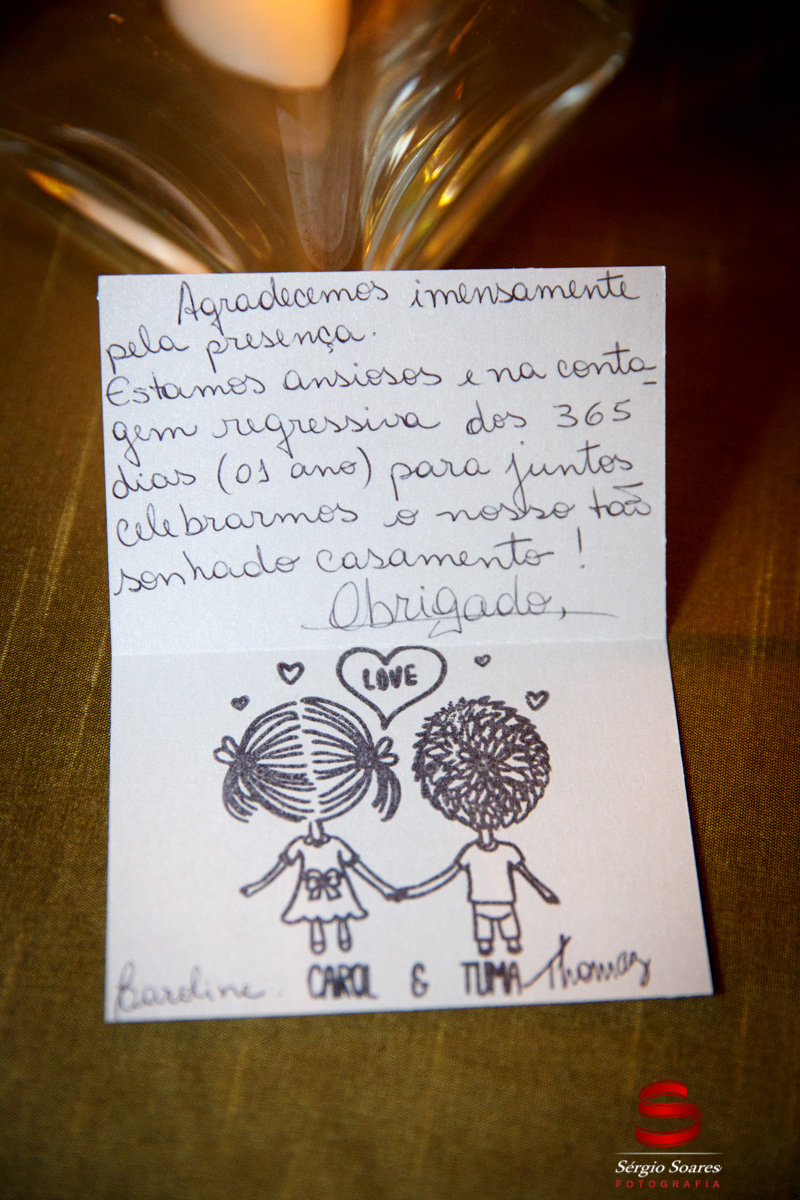 Agradecemos imensamente
pela presença.
Estamos ansiosos e na conta-
gem regressiva dos 365
dias (01 ano) para juntos
celebrarmos o nosso tão
sonhado casamento!
Obrigado,
LOVE
Caroline. CAROL & TUMA Thomaz
Sérgio Soares
FOTOGRAFIA